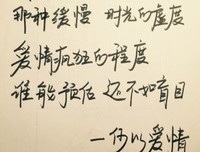 那种缓慢 时光的虔度
爱情疯狂的程度
谁能预估 还不如盲目
—何以爱情